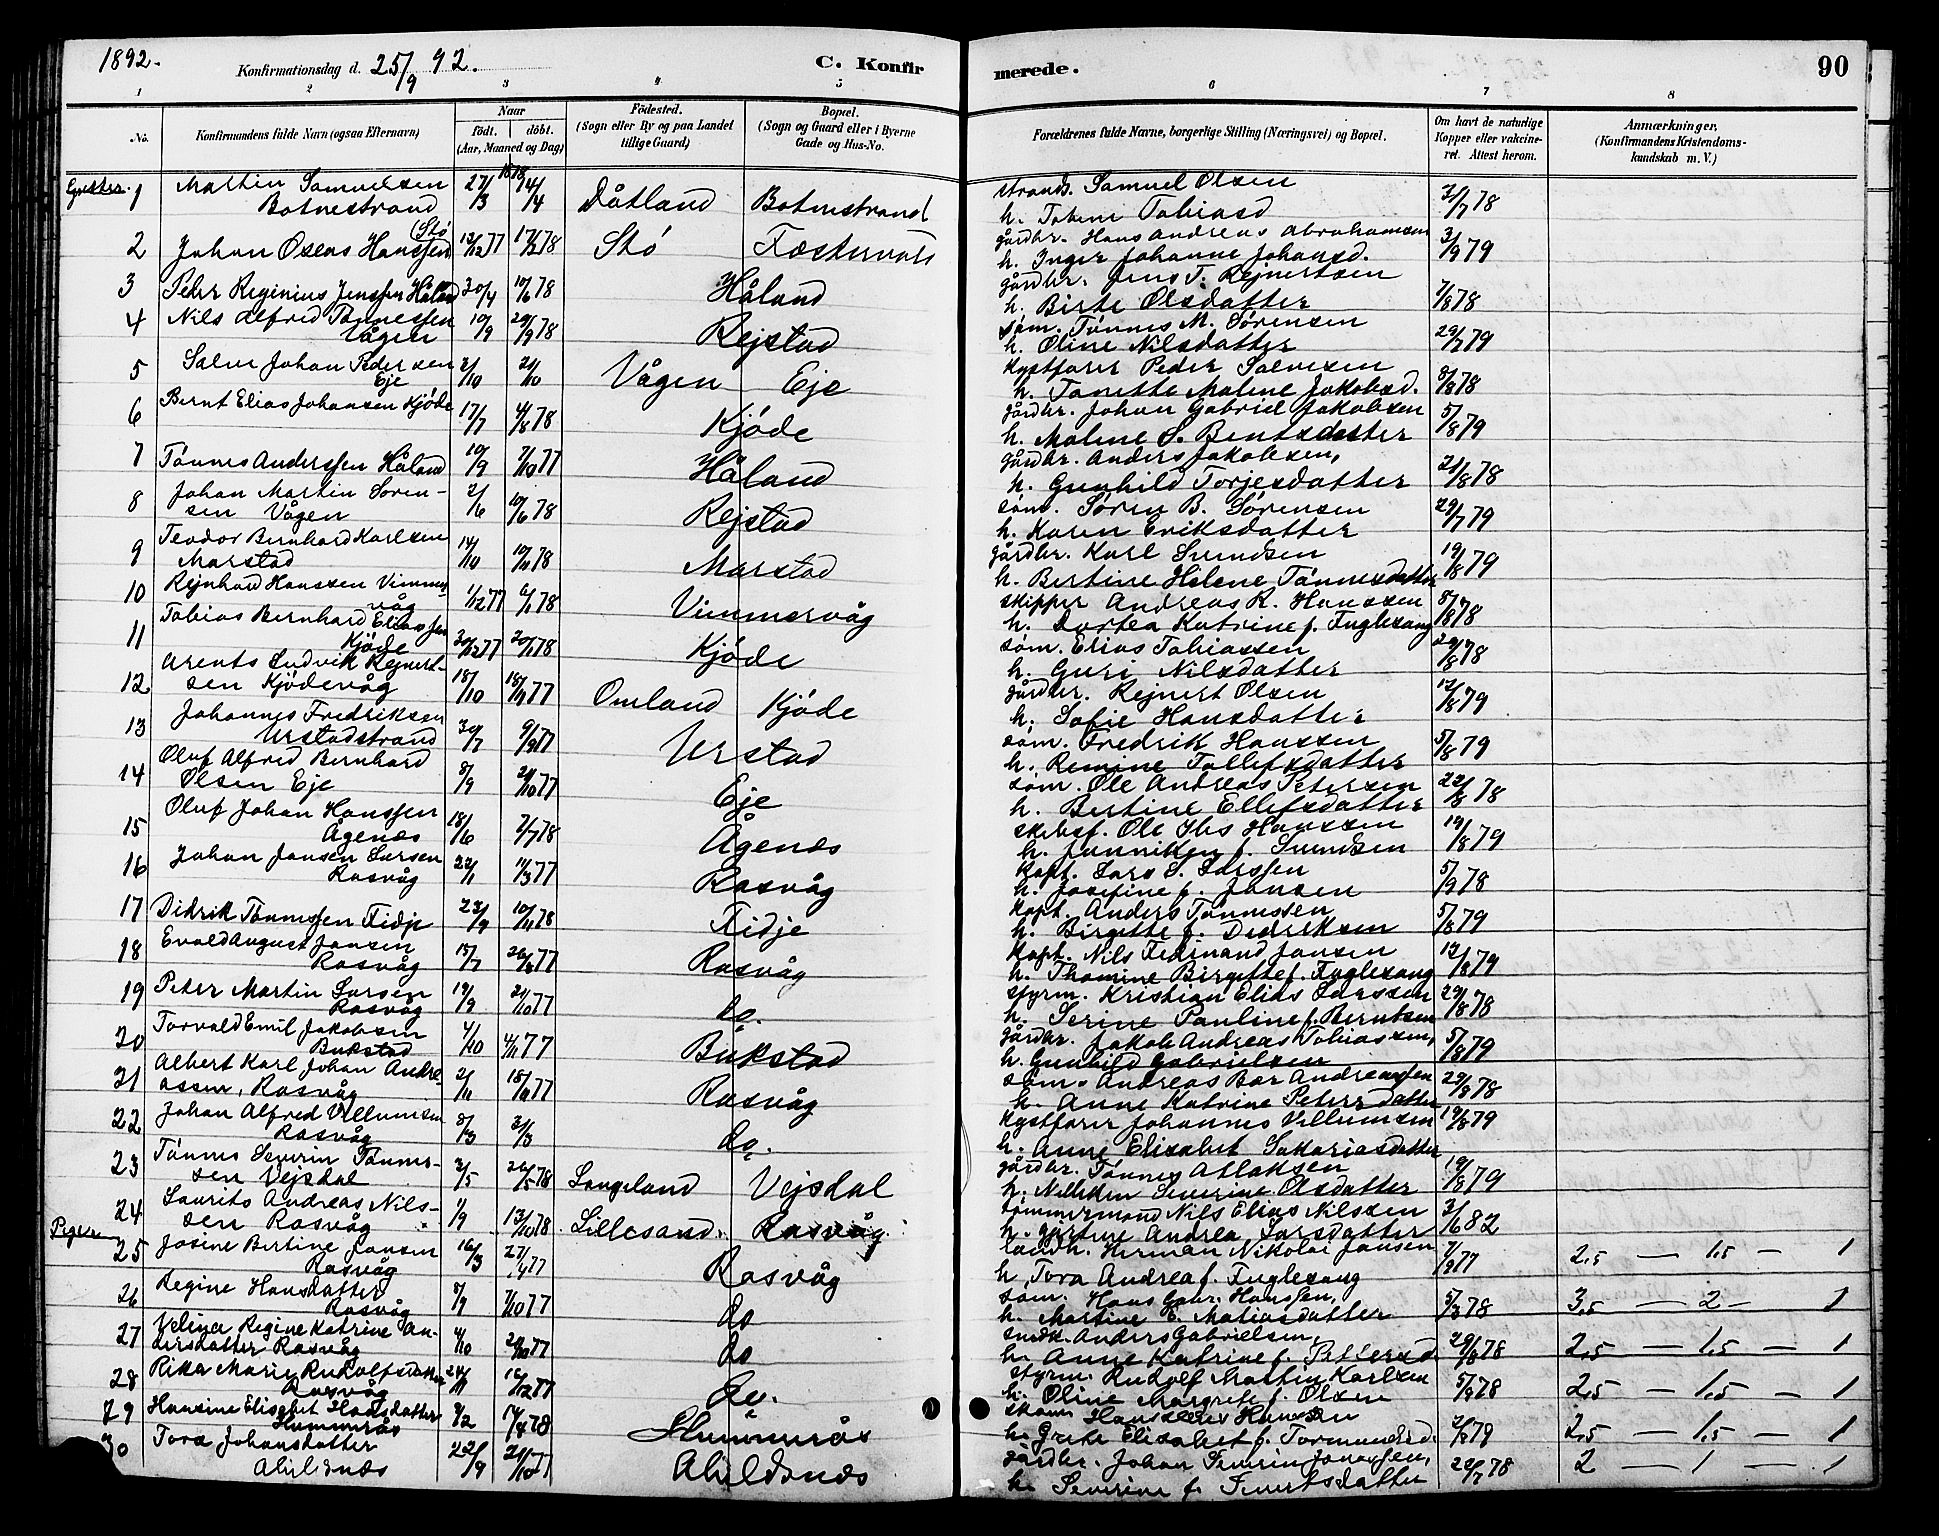 1892.
Konfirmationsdag d. 25/9 92.
C. Konfirmerede.
90
1 2 3 4 5 6 7 8
No.
Konfirmandens fulde Navn (ogsaa Efternavn)
Naar
født. døbt.
(Aar, Maaned og Dag)
Fødested.
(Sogn eller By og paa Landet tillige Gaard)
Bopæl.
(Sogn og Gaard eller i Byerne Gade og Hus-No.
Forældrenes fulde Navne, borgerlige Stilling (Næringsvei) og Bopæl.
Om havt de naturlige Kopper eller vakcineret. Attest herom.
Anmærkninger,
(Konfirmandens Kristendomskundskab m. V.)
Gutter.
1 Martin Samuelsen Botnestrand 27/3 1878 4/4 Dåtland Botnestrand strands. Samuel Olsen
h. Tobine Tobiasd 78
2 Johan Oseas Hanssen (Stö 12/12 77 17/2 78 Stö gårdbr. Hans Andreas Abrahamsen
h. Inger Johanne Johansd. 3/9 79
3 Peder Reginius Jenssen Håland 30/4 10/6 78 Håland gårdbr. Jens T. Rejnertsen
h. Birte Olsdatter 7/8 78
4 Nils Alfred Tønnessen Vågen 10/9 29/9 78 Rejstad søm. Tønnes M. Sørensen
h. Oline Nilsdatter 29/7 79
5 Salve Johan Pedersen Eje 2/10 21/10 Vågen Eje Kystfarer Peder Salvesen
h. Tonette Malene Jakobsd. 8/8 78
6 Bernt Elias Johansen Kjöde 17/7 4/8 78 Kjöde gårdbr. Johan Gabriel Jakobsen
h. Malene S. Bentsdatter 5/8 79
7 Tønnes Anderssen Håland 10/9 7/10 77 Håland gårdbr. Anders Jakobsen,
h. Gunhild Torjesdatter 21/8 78
8 Johan Martin Sorensen Vågen 2/6 10/6 78 Rejstad søm. Søren B. Sørensen
h. Karen Eriksdatter 29/7 79
9 Teodor Bernhard Karlsen Marstad 14/10 10/11 78 Marstad gårdbr. Karl Svendsen
h. Bertine Helene Tønnesdatter 19/8 79
10 Rejnhard Hanssen Vimmervåg 1/12 77 6/1 78 Vimmervåg skipper Andreas R. Hanssen
h. Dortea Katrine f. Fuglesang 8/8 78
11 Tobias Bernhard Eliassen Kjöde 30/12 77 20/1 78 Kjöde søm. Elias Tobiassen
h. Guri Nilsdatter 29/8 78
12 Arents Ludvik Rejnertsen Kjödevåg 18/10 18/11 77 Omland Kjöde gårdbr. Rejnert Olsen
h. Sofie Hansdatter 12/8 79
13 Johannes Fredriksen Urstadstrand 30/7 9/9 77 Urstad søm. Fredrik Hanssen
h. Remine Tollefsdatter 5/8 79
14 Oluf Alfred Bernhard Olsen Eje 8/9 21/10 77 Eje søm. Ole Andreas Petersen
h. Bertine Ellefsdatter 22/8 78
15 Oluf Johan Hanssen Ågenæs 18/6 7/7 78 Ågenæs skibsf. Ole Ibs Hanssen
h. Janniken f. Svendsen 19/8 79
16 Johan Jansen Larsen Rasvåg 22/1 11/3 77 Rasvåg Kapt. Lars S. Larssen
h. Josefine f. Jansen 5/9 78
17 Didrik Tønnessen Fidje 23/9 10/11 78 Fidje Kapt. Anders Tönnessen
h. Birgitte f. Didriksen 5/8 79
18 Evald August Jansen Rasvåg 15/7 26/8 77 Rasvåg Kapt. Nils Ferdinand Jansen
h. Thomine Birgitte f. Fuglesang 12/8 79
19 Peter Martin Larsen Rasvåg 19/9 21/10 77 do. styrm. Kristian Elias Larssen
h. Serine Pauline f. Berntsen 29/8 78
20 Torvald Emil Jakobsen Bukstad 4/10 4/11 77 Bukstad gårdbr. Jakob Andreas Tobiassen,
h. Gunhild Gabrielsen 5/8 79
21 Albert Karl Johan Andreassen, Rasvåg 2/11 18/11 77 Rasvåg søm. Andreas Bar Andreassen
h. Anne Katrine Petersdatter 29/8 78
22 Johan Alfred Villumsen Rasvåg 8/3 31/3 do. Kystfarer Johannes Villumsen
h. Anne Elisabet Sakariasdatter 19/8 79
23 Tønnes Severin Tønnessen Vejsdal 3/5 26/5 78 Langeland Vejsdal gårdbr. Tønnes Atlaksen
h. Severine Olsdatter 19/8 79
24 Laurits Andreas Nilssen Rasvåg 1/9 13/10 78 Lillesand. Rasvåg tømmermand Nils Elias Nilssen
h. Andrea Larsdatter 3/6 82
Piger
25 Josine Bertine Jansen Rasvåg 16/3 27/4 77 Rasvåg landh. Herman Nikolai Jansen
h. Tora Andrea f. Fuglesang 77 2,5 — 1,5 — 1
26 Regine Hansdatter Rasvåg 8/9 7/10 77 do søm. Hans Gabr. Hanssen,
h. Martine E. Matiasdatter 78 3,5 — 2 — 1
27 Regine Katrine Andersdatter Rasvåg 4/10 77 do snedk. Anders Gabrielsen,
h. Anne Katrine f. Pettersd. 29/8 78 2,5 — 1,5 — 1
28 Rika Marie Rudolfsdatter Rasvåg 24/11 77 do. styrm. Rudolf Martin Karlsen
h. Oline Margrete f. Olsen 5/9 78 2,5 — 1,5 — 1
29 Hansine Elisabet Hansdatter Hummrås 78 Hummrås Hanssen
h. Grete Elisabet f. Tormundsd. 79 2,5 — 1,5 — 1
30 Tora Johansdatter Abildsnæs 22/9 21/10 77 Abildsnæs gårdbr. Johan Severin
h. Severine f. 78 2 — 1 — 1